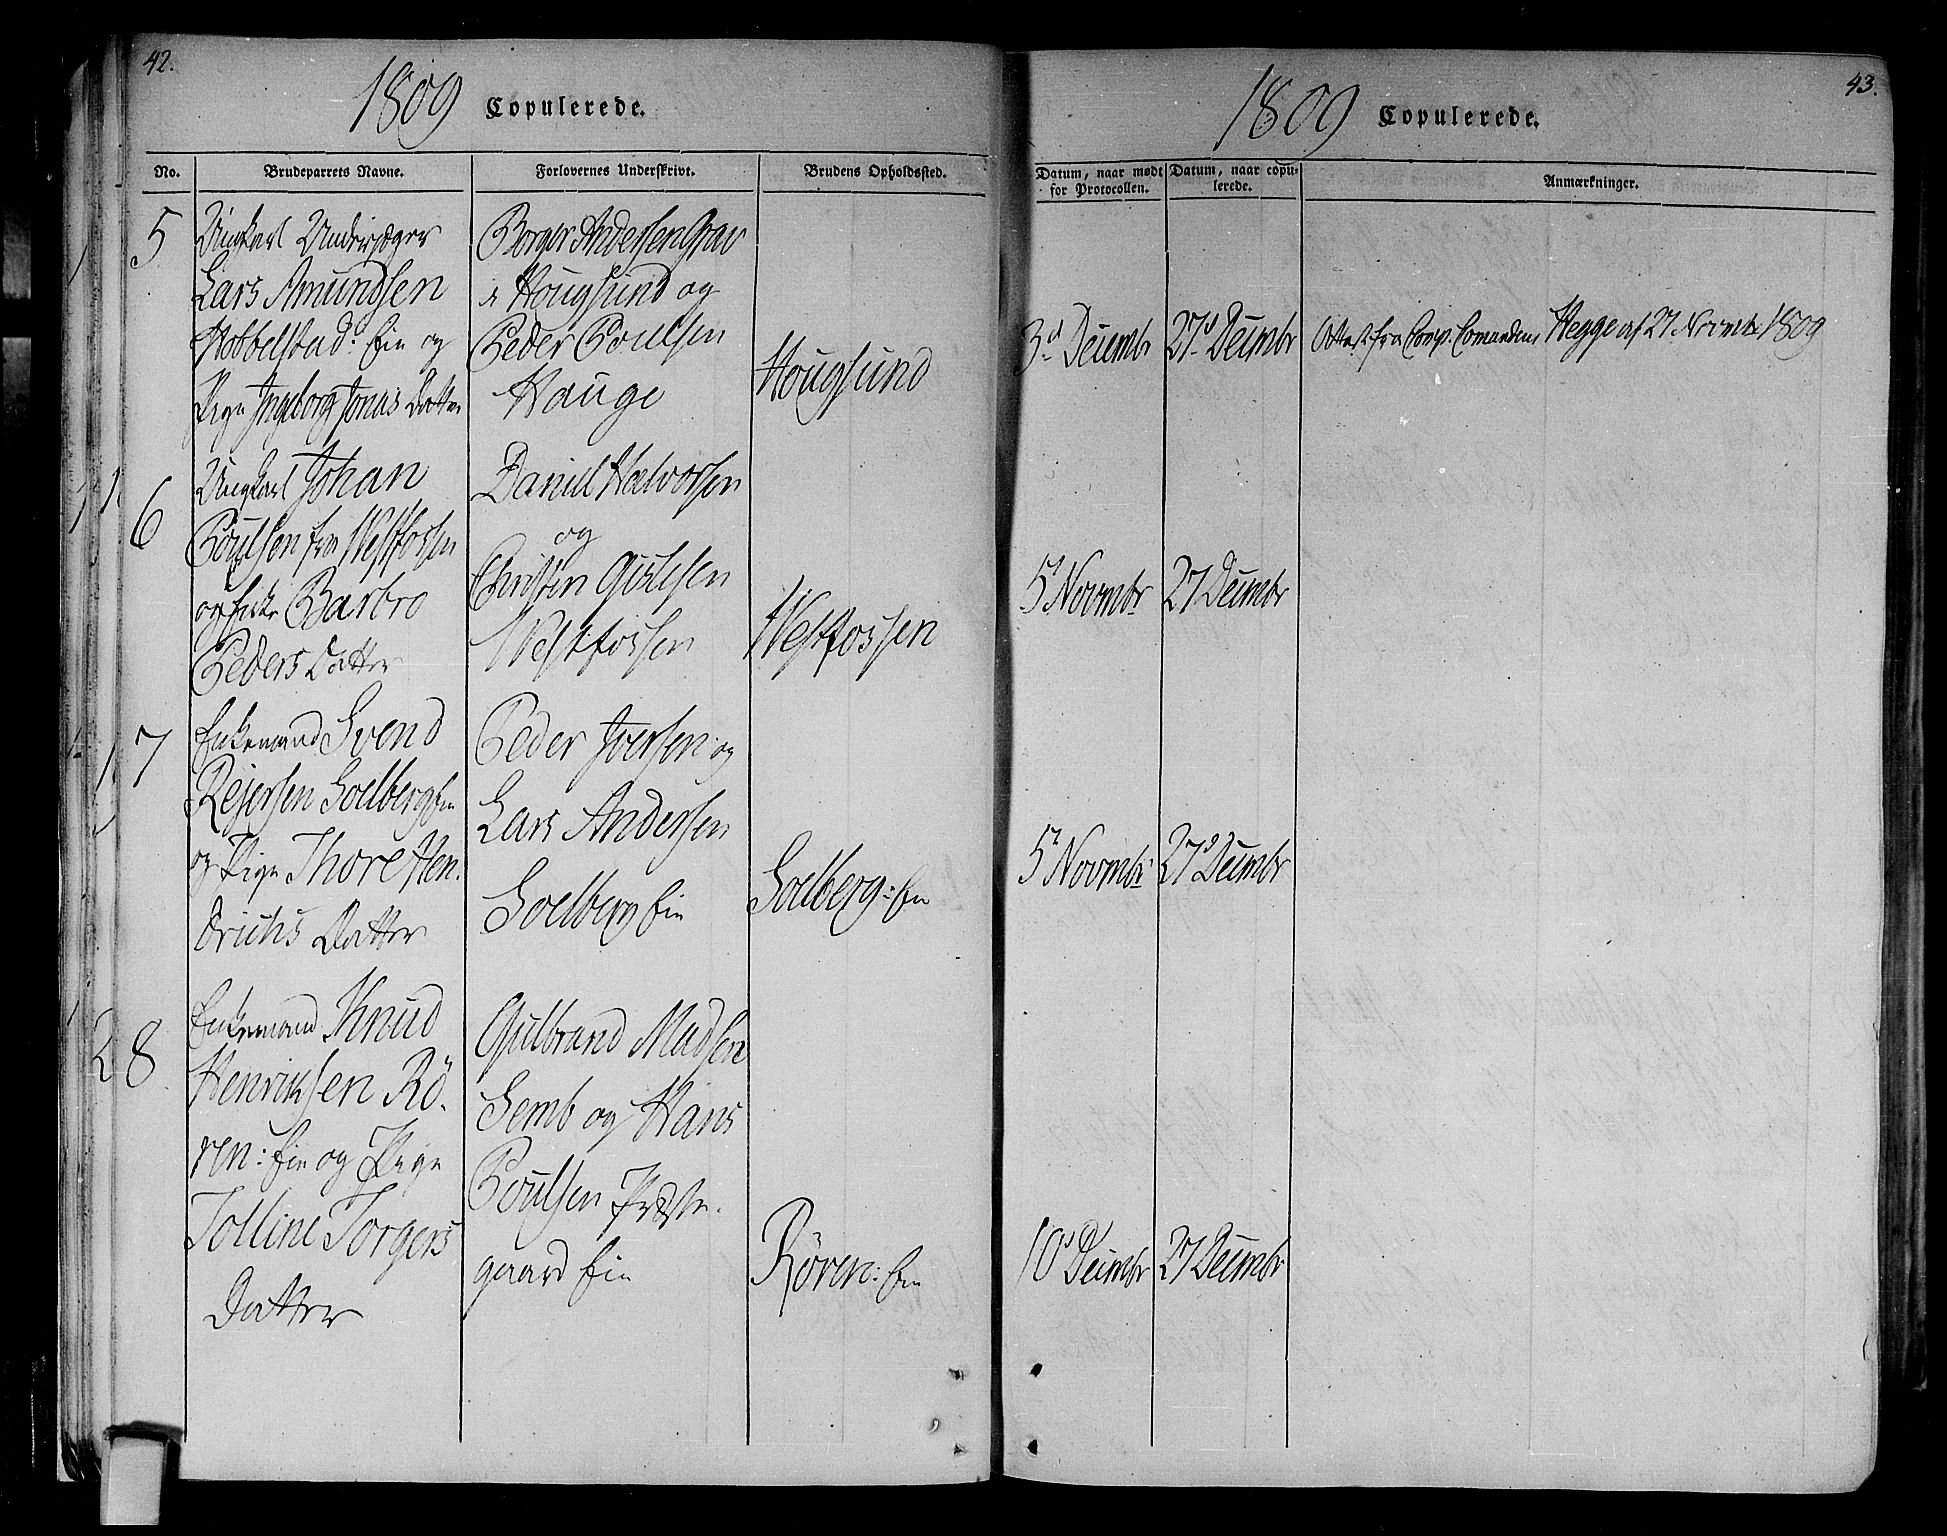 42.
1809 Copulerede.
No.
Brudeparrets Navne.
Forlovernes Underskrivt.
Brudens Opholdssted.
5
Ungkarl Underjæger
Lars Amundsen
Hobbelstad: Eie og
Pige Ingeborg Jonas Datter
Borger Andersen Grav
i Hougsund og
Peder Poulsen
Hauge
Hougsund
6
Ungkarl Johan
Poulsen fra Vestfossen
og Enke Barbro
Peders Datter
Daniel Halvorsen
og
Christen Gulesen
Vestfossen
Vestfossen
7
Enkemand Svend
Rejersen Soelberg Eie
og Pige Thore Hen-
drichs Datter
Peder Iversen og
Lars Andersen
Soelberg Eie
Soelberg: Eie
8
Enkemand Knud
Henriksen Rö-
ren: Eie og Pige
Tolline Torgers
Datter
Gulbrand Madsen
Semb og Hans
Poulsen Præste-
gaard Eie
Rören: Eie
43.
1809 Copulerede.
Datum, naar mødt for Protocollen.
Datum, naar copu-
lerede.
Anmærkninger.
3d Decembr
27d Decembr
Attest fra Comp. Comandeur Hegge af 27 Novembr 1809
5t Novembr
27 Decembr
5t Novembr
27d Decembr
10d Decembr
27 Decembr